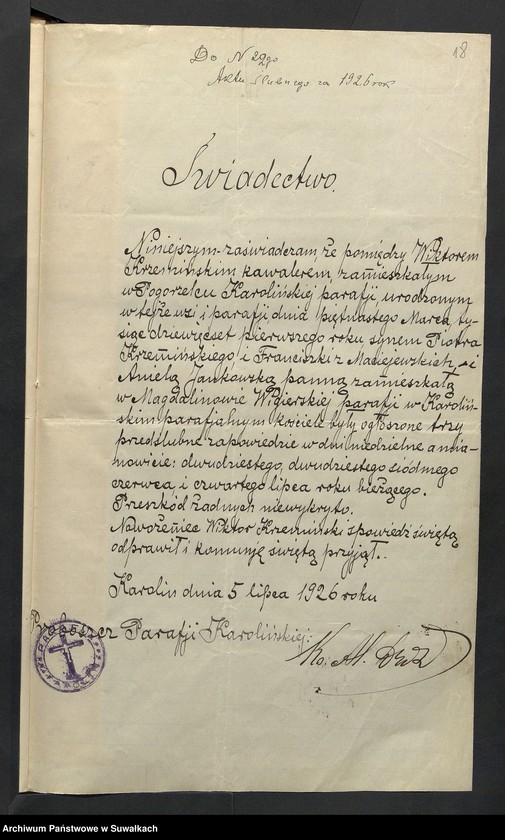 18
Do N 22go
Aktu ślubnego za 1926 rok
Świadectwo.
Niniejszym zaświadczam, że pomiędzy Wiktorem
Krzemińskim kawalerem, zamieszkałym
w Pogorzelcu Karolińskiej parafji, urodzonym
w tejże wsi i parafji dnia piętnastego Marca ty-
siąc dziewięćset pierwszego roku synem Piotra
Krzemińskiego i Franciszki z Maciejewskich, - i
Anielą Jankowską panną zamieszkałą
w Magdalinowie Wigierskiej parafji w Karoliń-
skim parafjalnym kościele były ogłoszone trzy
przedślubne zapowiedzie w dni niedzielne a mia-
nowicie: dwudziestego, dwudziestego siódmego
czerwca i czwartego lipca roku bieżącego.
Przeszkód żadnych niewykryto.
Nowożeniec Wiktor Krzemiński spowiedź świętą
odprawił i komunję świętą przyjął.
Karolin dnia 5 lipca 1926 roku
Proboszcz Parafji Karolińskiej:
Ks. M.
Archiwum Państwowe w Suwałkach